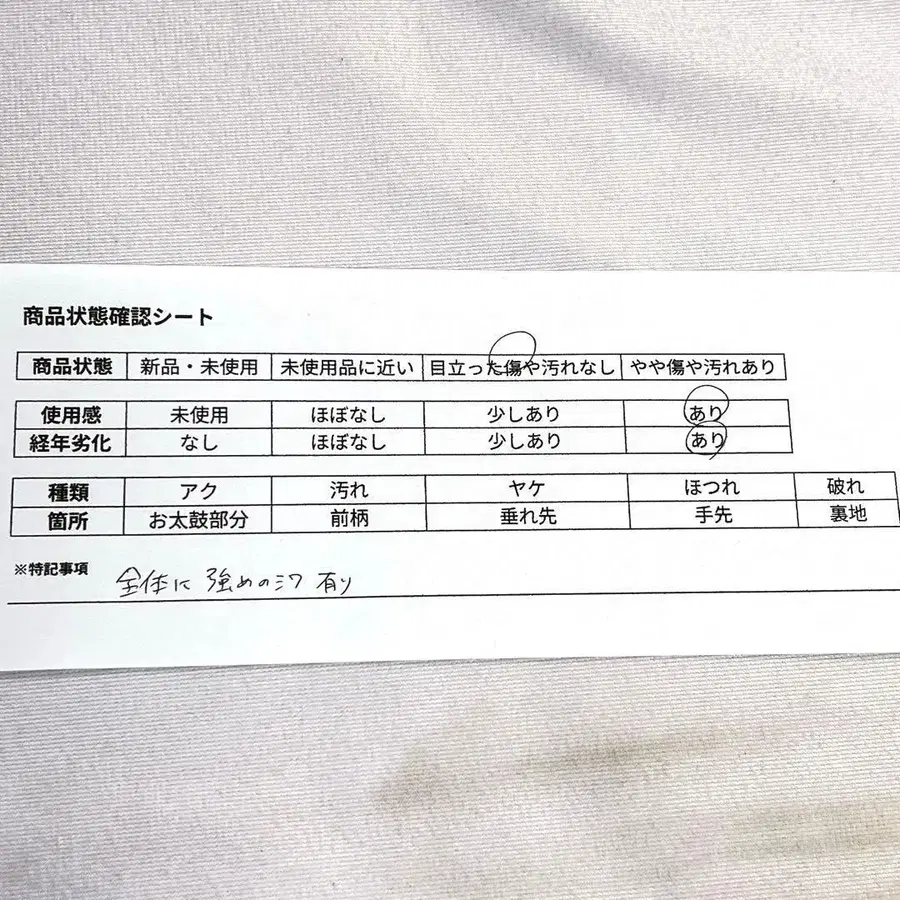 商品状態確認シート
商品状態 新品・未使用 未使用品に近い 目立った傷や汚れなし やや傷や汚れあり
使用感 未使用 ほぼなし 少しあり あり
経年劣化 なし ほぼなし 少しあり あり
種類 アク 汚れ ヤケ ほつれ 破れ
箇所 お太鼓部分 前柄 垂れ先 手先 裏地
※特記事項 全体に 強めのシワ 有り